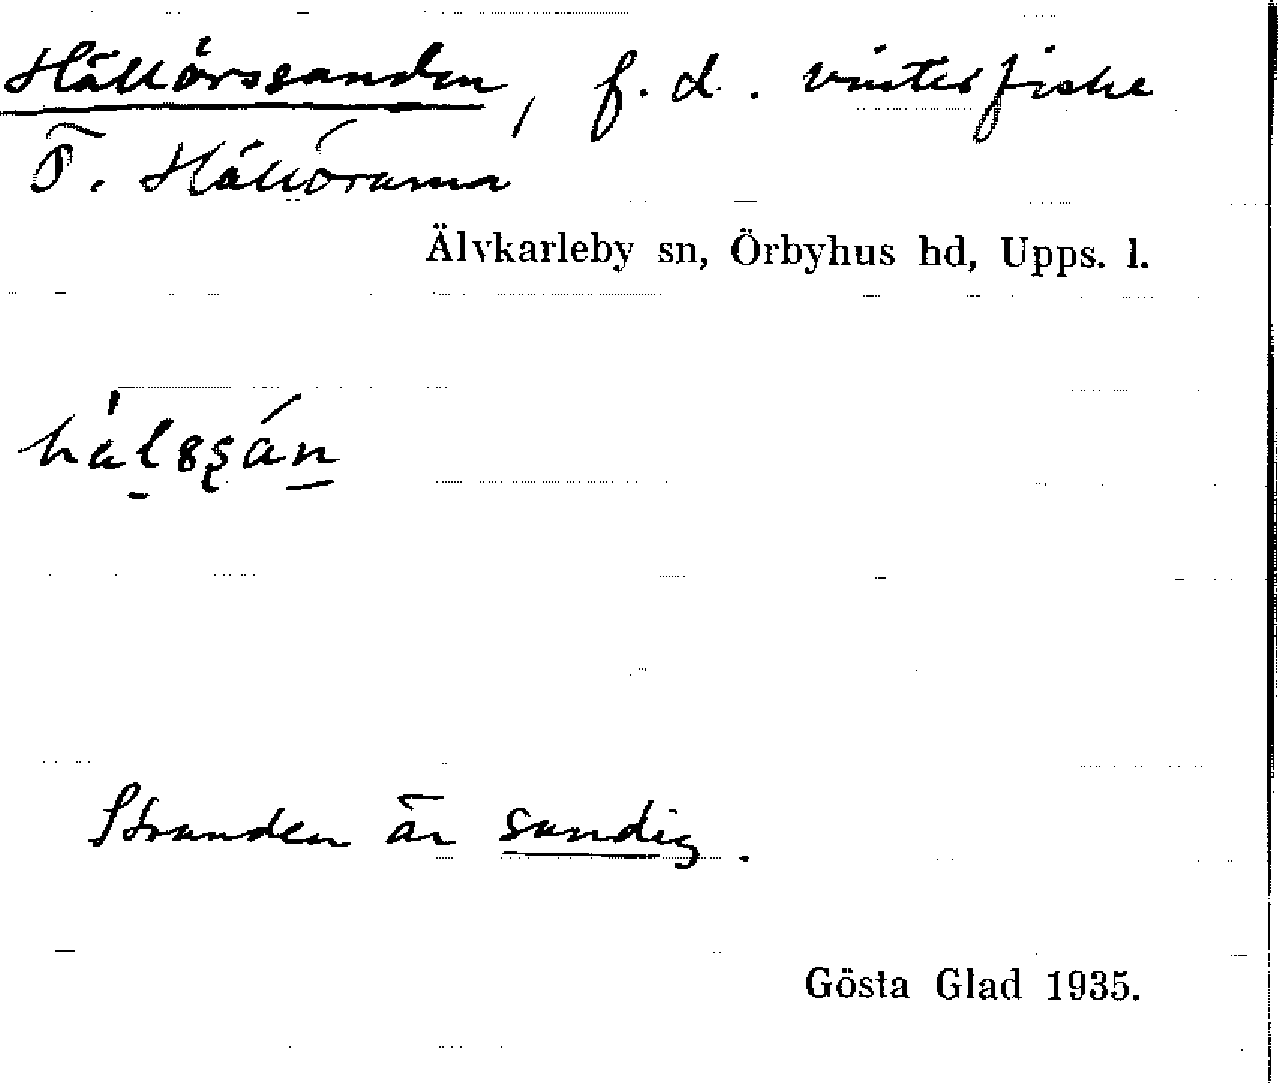 Hällörssanden, f.d. vinterfiske
Ö. Hällörarna
Älvkarleby sn, Örbyhus hd, Upps. l.
Stranden är sandig.
Gösta Glad 1935.